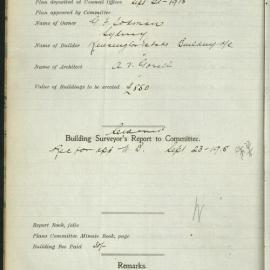 Plan deposited at Council Offices Sept 21-1915
Plan approved by Committee
Name of Owner G. F. Todman
Sydney
Name of Builder Kensington Estate Building Co
Name of Architect A. V.
Value of Buildings to be erected £550
Building Surveyor's Report to Committee.
Rec for app Sept 23-1915
Report Book, folio
Plans Committee Minute Book, page
Building Fee Paid 30/-
Remarks.